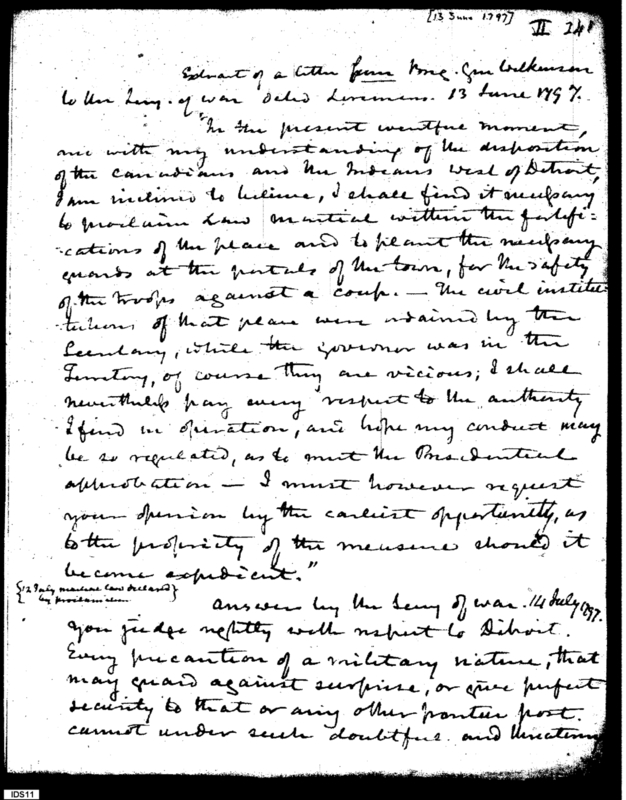 [13 June 1797]
II 241
Extract of a letter from Brig. Gen Wilkinson
to the Secy. of war dated Loramies. 13 June 1797.
"In the present eventful moment,
and with my understanding of the disposition
of the Canadians and the Indians west of Detroit,
I am inclined to believe, I shall find it necessary
to proclaim Law martial within the fortifi=
-cations of the place and to plant the necessary
guards at the portals of the town, for the safety
of the troops against a coup. — The civil institu
tutions of that place were ordained by the
Secretary, while the governor was in the
Territory, of course they are vicious; I shall
nevertheless pay every respect to the authority
I find in operation, and hope my conduct may
be so regulated, as to meet the Presidential
approbation — I must however request
your opinion by the earliest opportunity, as
to the propriety of the measure should it
become expedient."
{12 July martial law declared}
{by proclamation
answer by the Secy of war. 14 July 1797.
You judge rightly with respect to Detroit.
Every precaution of a military nature, that
may guard against surprise, or give perfect
security to that or any other frontier post.
cannot under such doubtful and threatening
IDS11